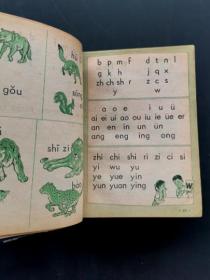 gǒu
shī zi
b p m f d t n l
g k h j q x
zh ch sh r z c s
y w
a o e i u ü
ai ei ui ao ou iu ie üe er
an en in un ün
ang eng ing ong
zhi chi shi ri zi ci si
yi wu yu
ye yue yin
yun yuan ying